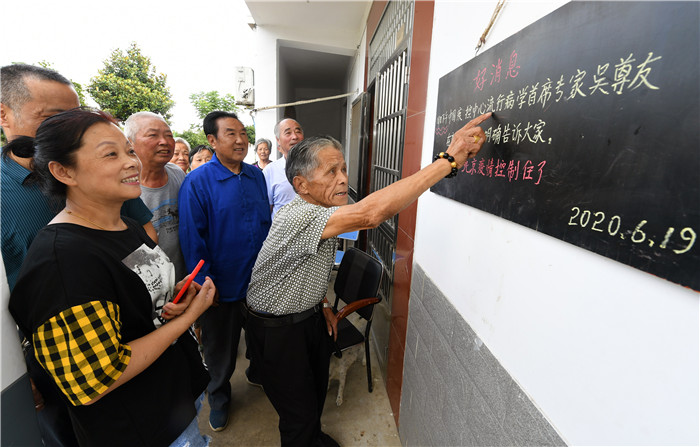 好消息
控中心流行病学首席专家吴尊友
明确告诉大家,
北京疫情控制住了
2020.6.19